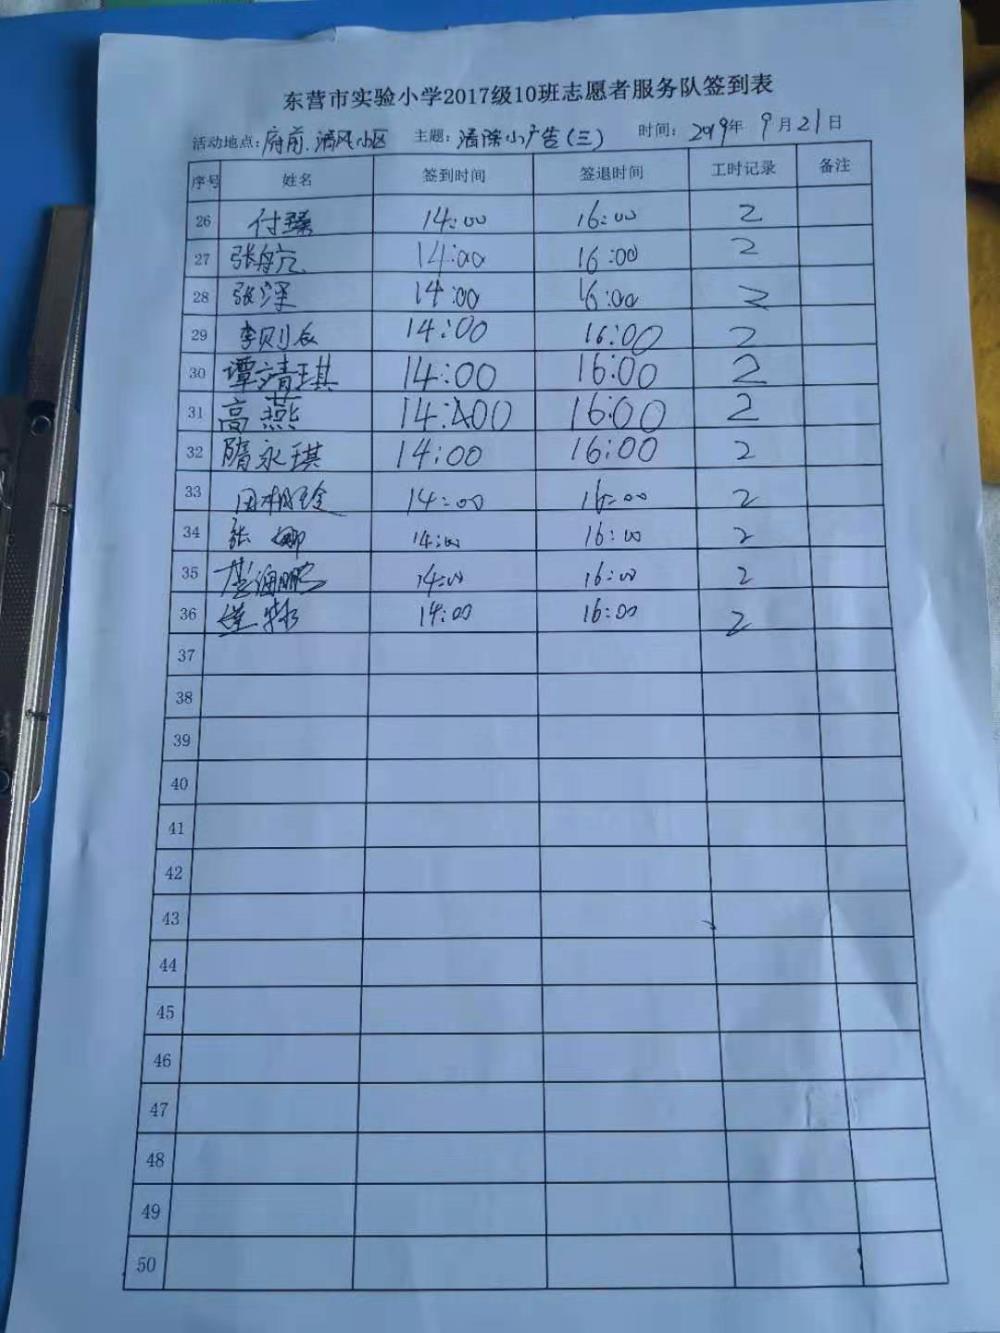 东营市实验小学2017级10班志愿者服务队签到表
活动地点：府前、清风小区 主题：清除小广告（三） 时间：2019年9月21日
序号 姓名 签到时间 签退时间 工时记录 备注
26 付臻 14:00 16:00 2
27 张航 14:00 16:00 2
28 张深 14:00 16:00 2
29 李则辰 14:00 16:00 2
30 谭靖琪 14:00 16:00 2
31 高燕 14:00 16:00 2
32 隋永琪 14:00 16:00 2
33 14:00 16:00 2
34 张娜 14:00 16:00 2
35 海鹏 14:00 16:00 2
36 14:00 16:00 2
37
38
39
40
41
42
43
44
45
46
47
48
49
50